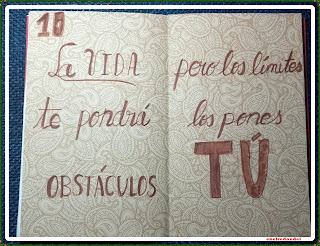 10
La VIDA
te pondrá
OBSTÁCULOS
pero los límites
los pones
TÚ